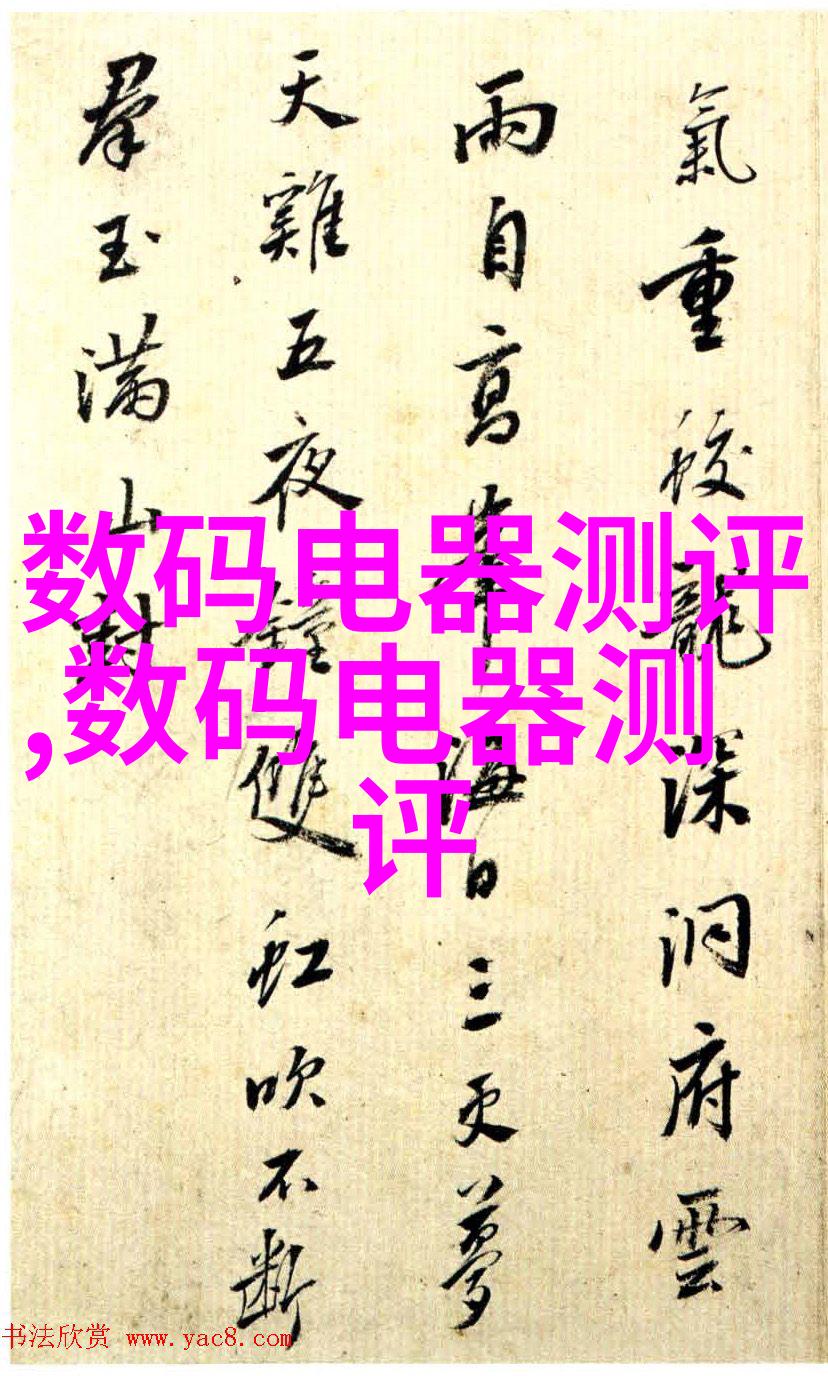 氣重蛟龍深洞府雲
雨自高峯海日三更夢
天雞五夜鐘雙虹吹不斷
羣玉满山對
数码电器测评
,数码电器测
评
书法欣赏 www.yac8.com